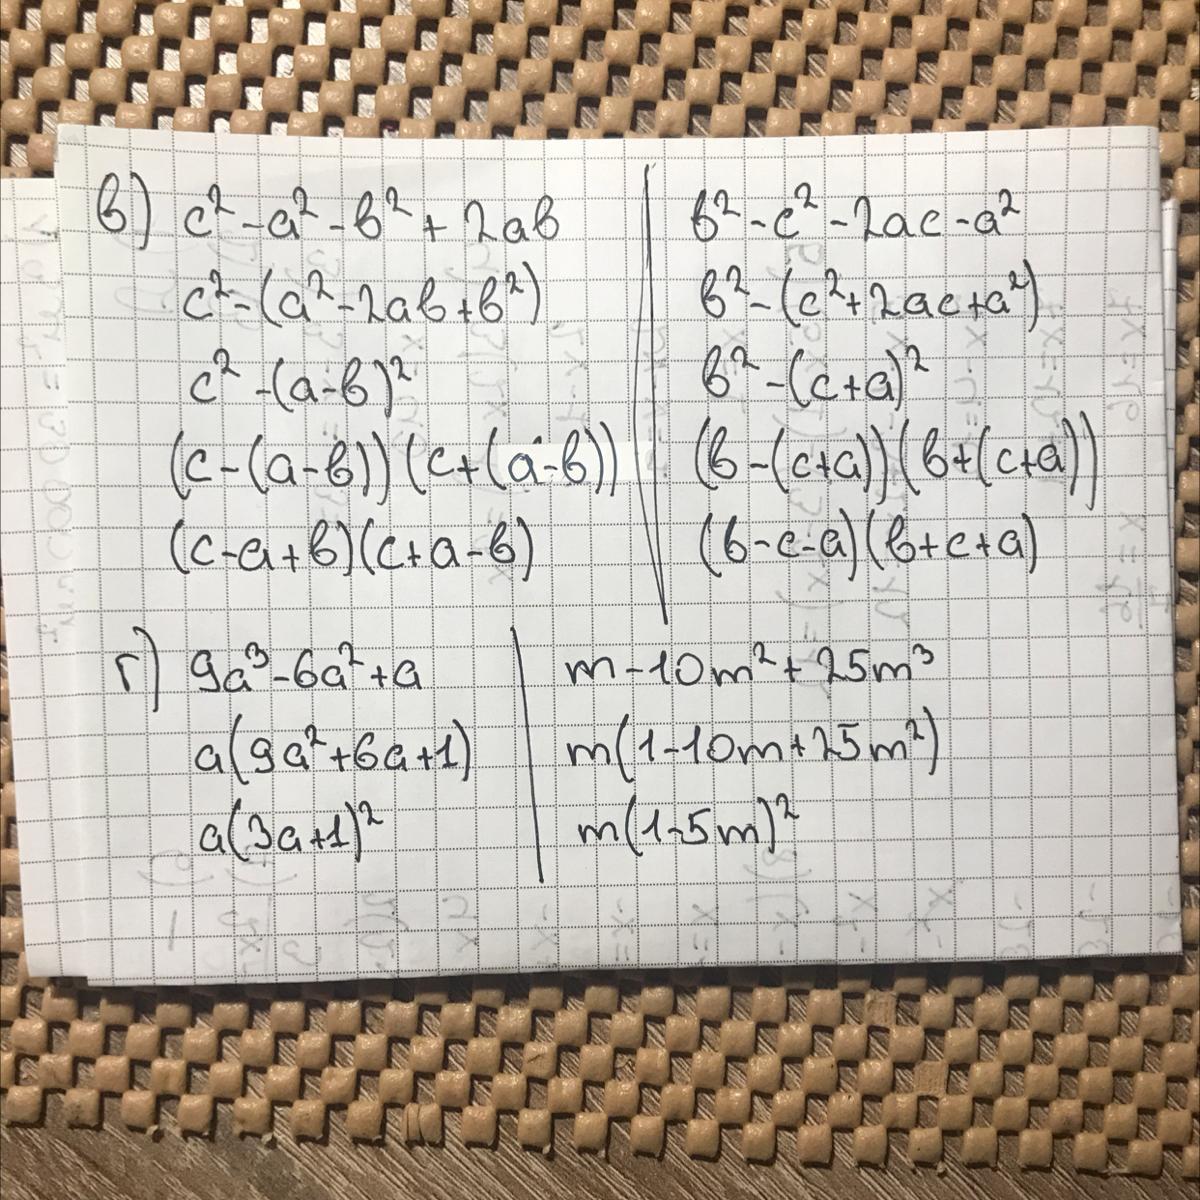 в) c² - a² - b² + 2ab
c² - (a² - 2ab + b²)
c² - (a - b)²
(c - (a - b))(c + (a - b))
(c - a + b)(c + a - b)
b² - c² - 2ac - a²
b² - (c² + 2ac + a²)
b² - (c + a)²
(b - (c + a))(b + (c + a))
(b - c - a)(b + c + a)
г) 9a³ - 6a² + a
a(9a² + 6a + 1)
a(3a + 1)²
m - 10m² + 25m³
m(1 - 10m + 25m²)
m(1 - 5m)²